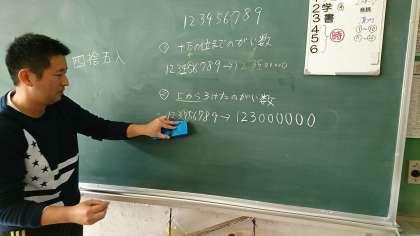 123456789
四捨五入
① 十万の位までのがい数
123456789→123500000
② 上から3けたのがい数
123456789→123000000
学
書
時
1
2
3
4
5
6